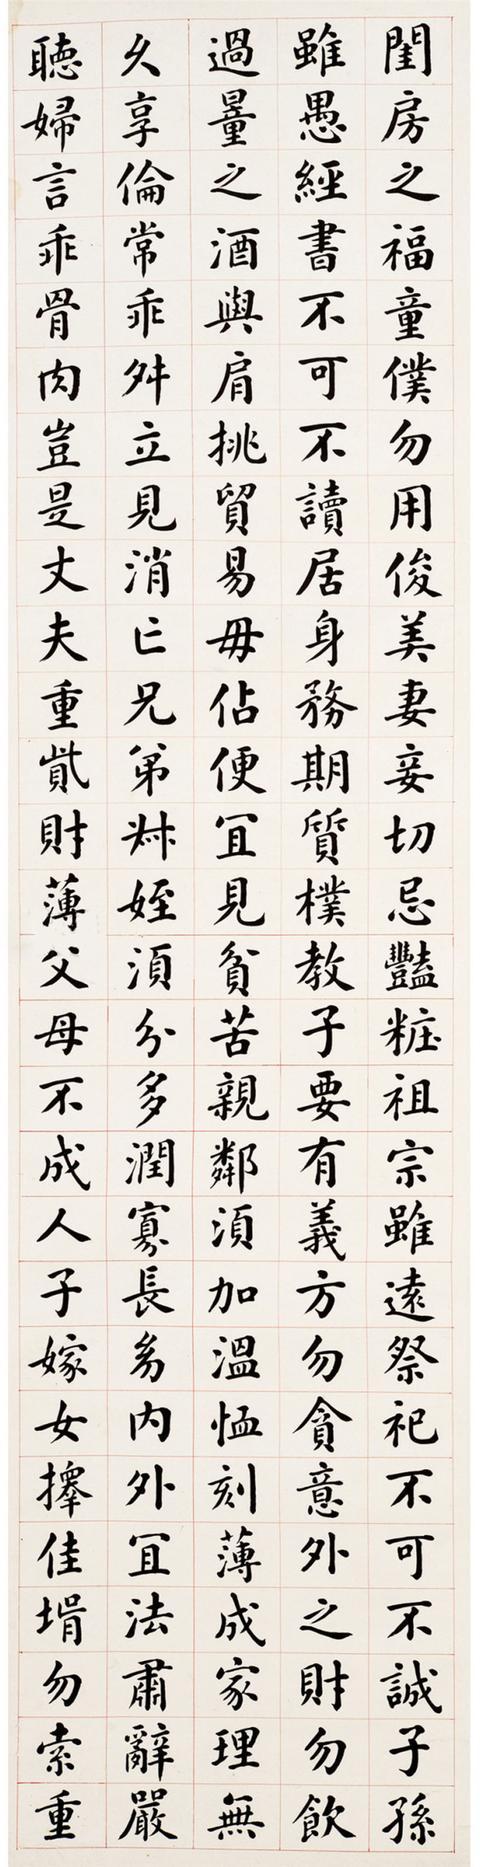 閨房之福童僕勿用俊美妻妾切忌豔粧祖宗雖遠祭祀不可不誠子孫
雖愚經書不可不讀居身務期質樸教子要有義方勿貪意外之財勿飲
過量之酒與肩挑貿易毋佔便冝見貧苦親鄰湏加溫恤刻薄成家理無
久享倫常乖舛立見消亡兄弟叔姪湏分多潤寡長幼內外冝法肅辭嚴
聽婦言乖骨肉豈是丈夫重貲財薄父母不成人子嫁女擇佳壻勿索重